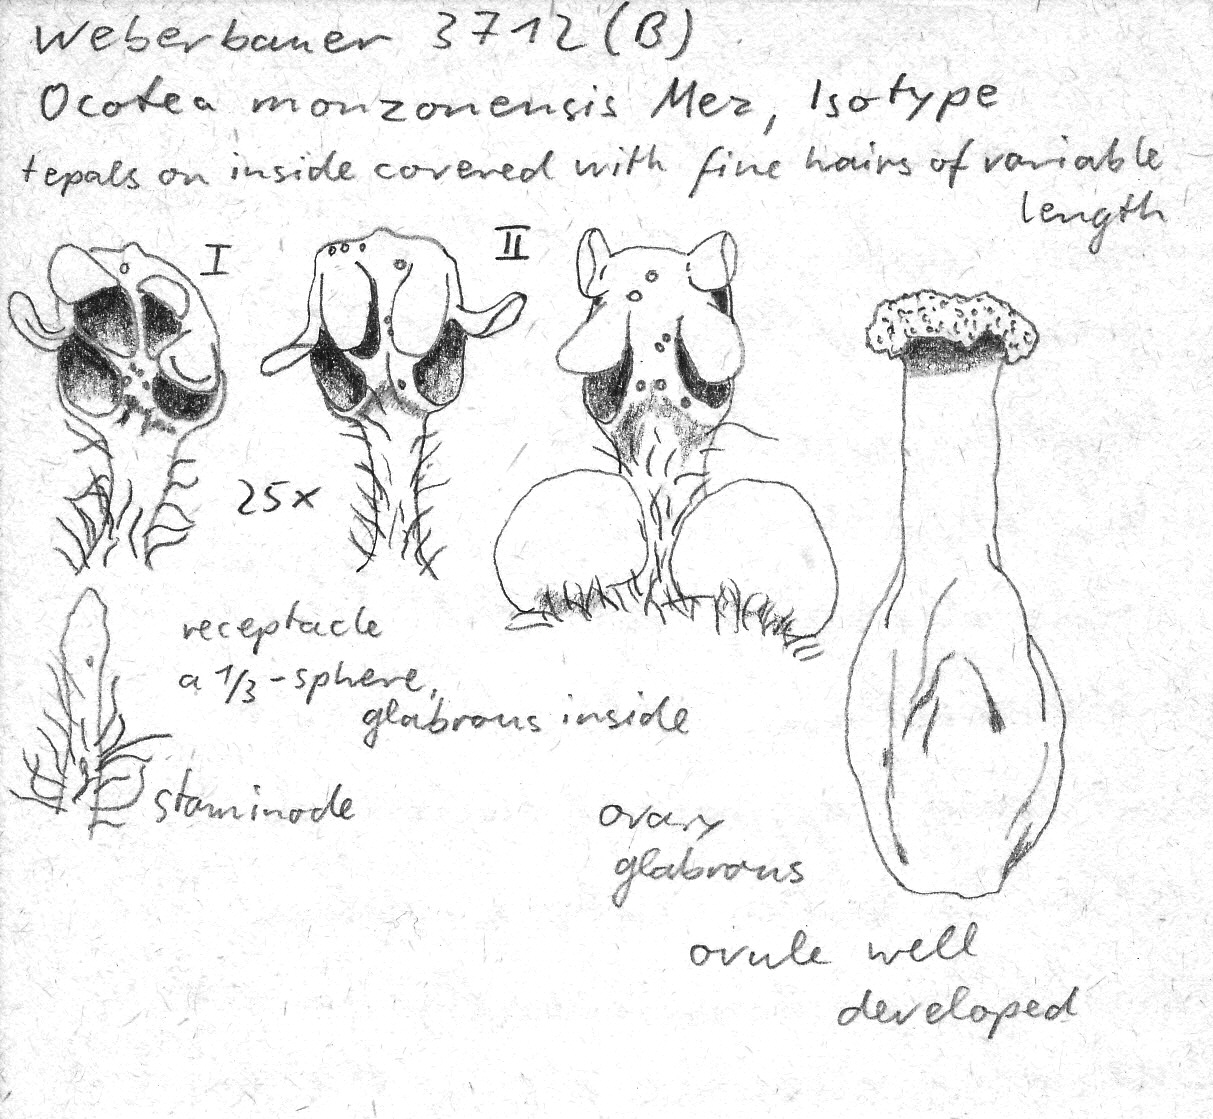 Weberbauer 3712 (B)
Ocotea monzonensis Mez, Isotype
tepals on inside covered with fine hairs of variable
length
I
II
25x
receptacle
a 1/3-sphere,
glabrous inside
staminode
ovary
glabrous
ovule well
developed